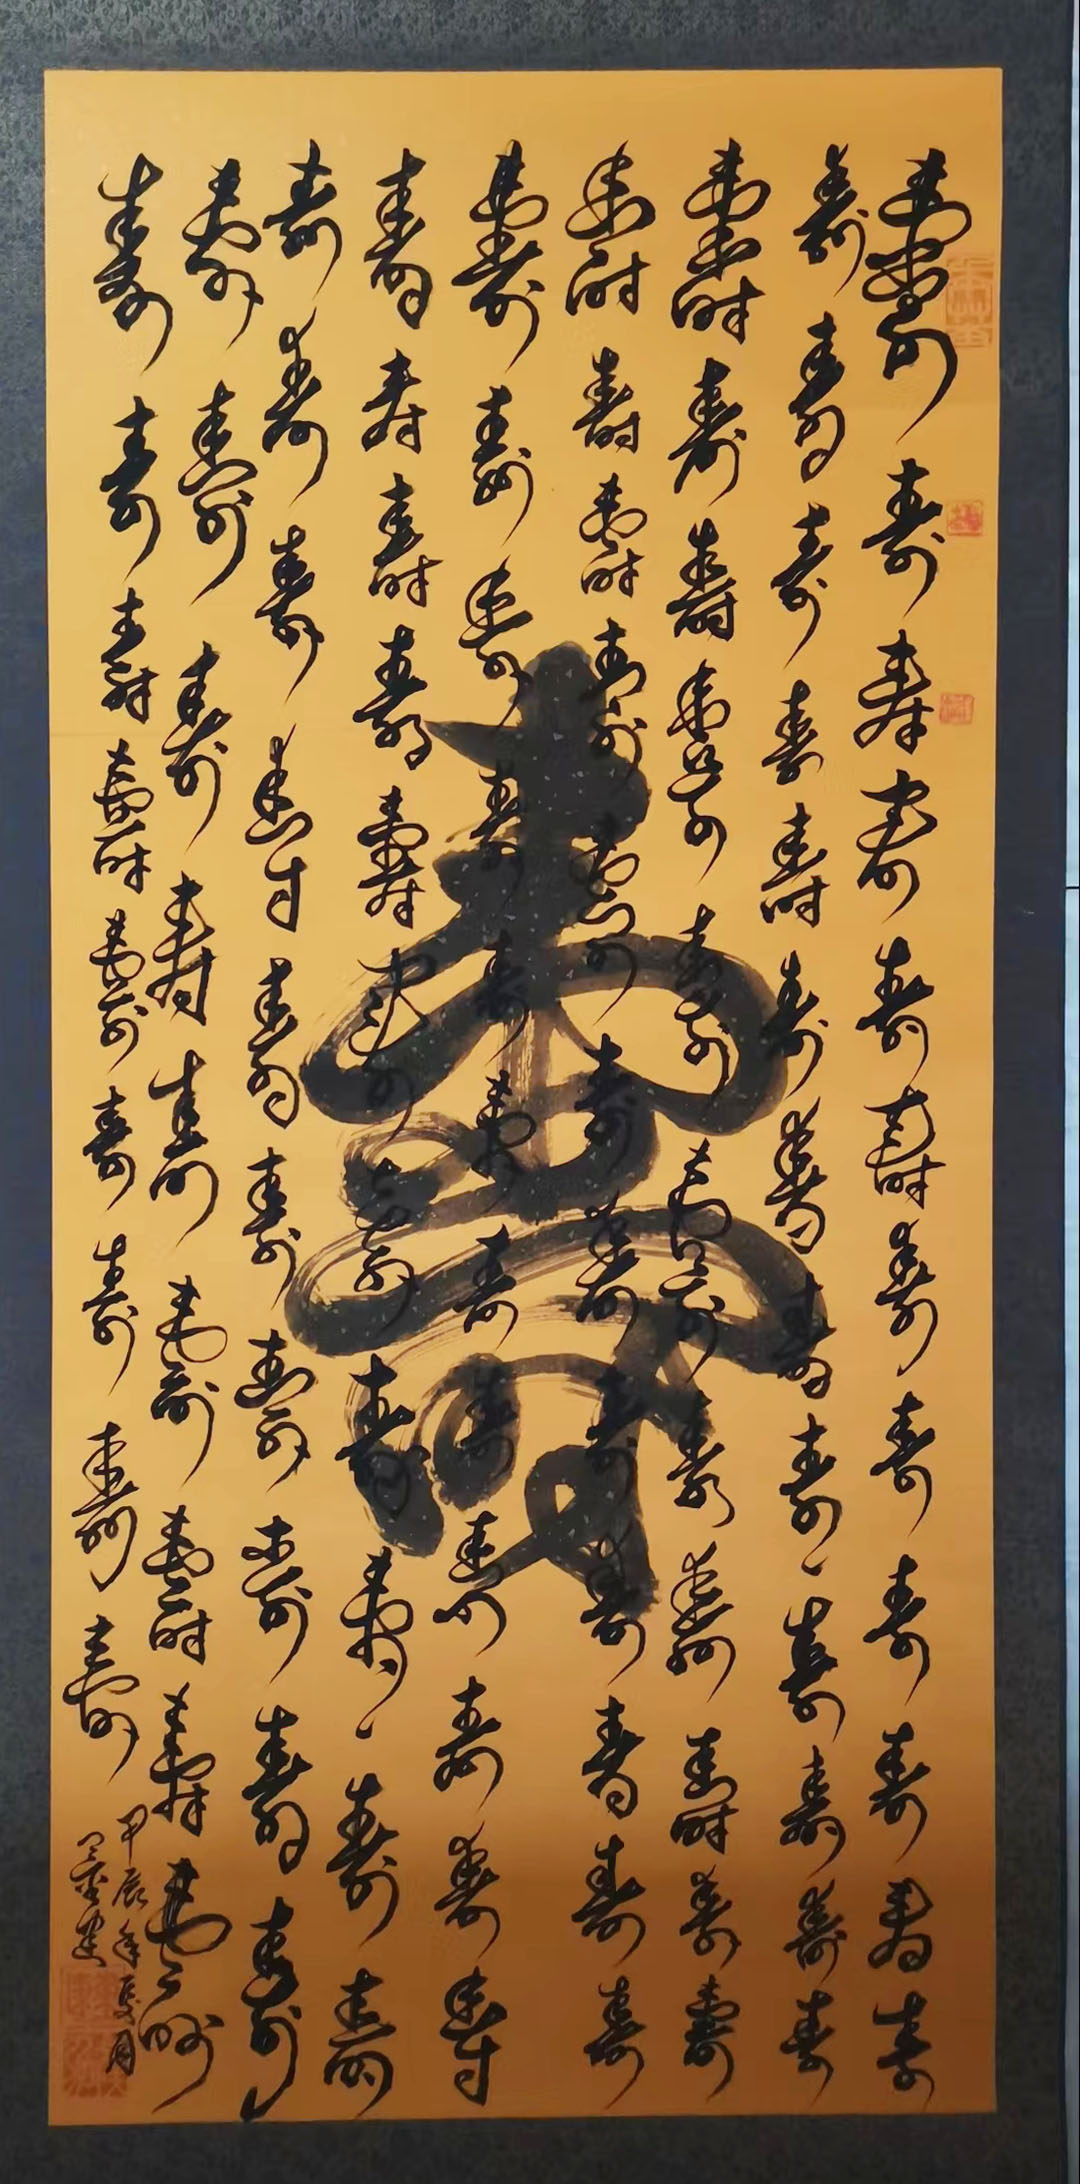 壽
壽壽壽壽壽壽壽壽壽壽壽壽
壽壽壽壽壽壽壽壽壽壽壽壽壽
壽壽壽壽壽壽壽壽壽壽壽
壽壽壽壽壽壽壽壽壽壽壽壽
壽壽壽壽壽壽壽壽壽壽壽壽
壽壽壽壽壽壽壽壽壽壽壽
壽壽壽壽壽壽壽壽壽壽
壽壽壽壽壽壽壽壽壽
壽壽壽壽壽壽壽壽壽
甲辰年夏月